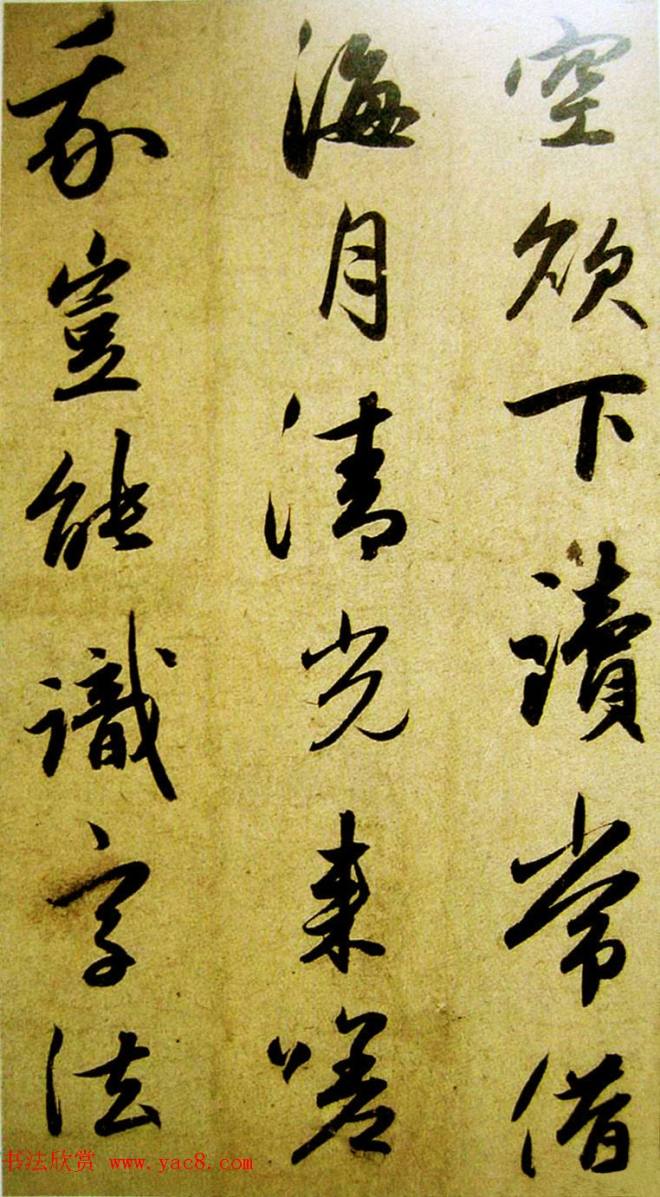 空欲下讀常借
海月清光來嗟
予豈能識字法
书法欣赏 www.yac8.com